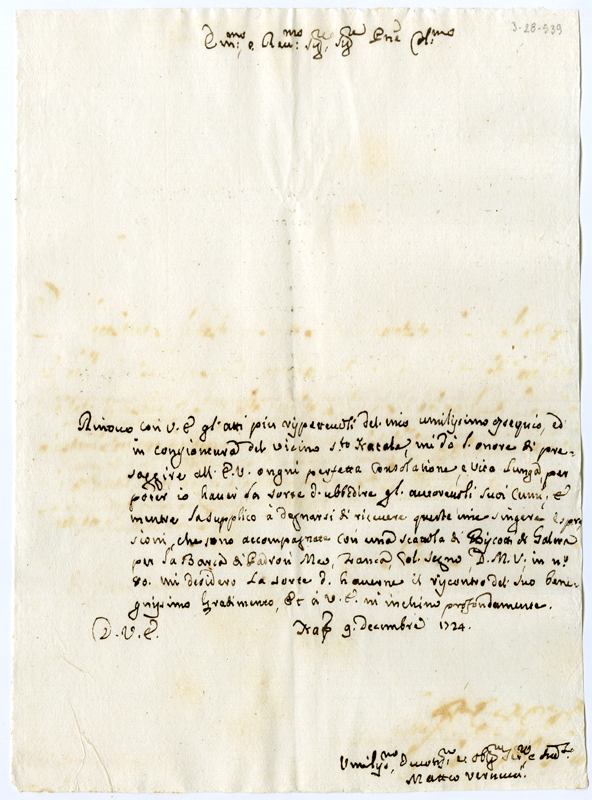 3-28-539
Em:mo e Reu:mo Sig:re Sig:re Prne Col:mo
Rinouo con V. E. gl'atti più rispetteuoli del mio umilissimo ossequio, ed
in congiontura del vicino S.to Natale, mi dà l'onore di pre-
saggire all'E.V. ongni perfetta Consolatione, e Vita Lunga, per
poter io hauer La sorte d'ubbedire gl'autoreuoli Suoi Cenni, E
mentre La supplico à degnarsi di riceuere queste mie singere Espre
sioni, che sono accompagnate con una scatola di Biscotti di
per La Barca di Padron Meo, Franca, Col Segno, D. M. V: in n.o
80. mi desidero La sorte d'hauerne il riscontro del Suo beni-
gnissimo Gradimento, Et à V. E. mi inchino profondamente.
D. V. E. Nap 9. decembre 1724.
Umiliss.mo, Deuotiss.mo et Obbl.mo Ser.re e Sud.to
Matteo Vernucci